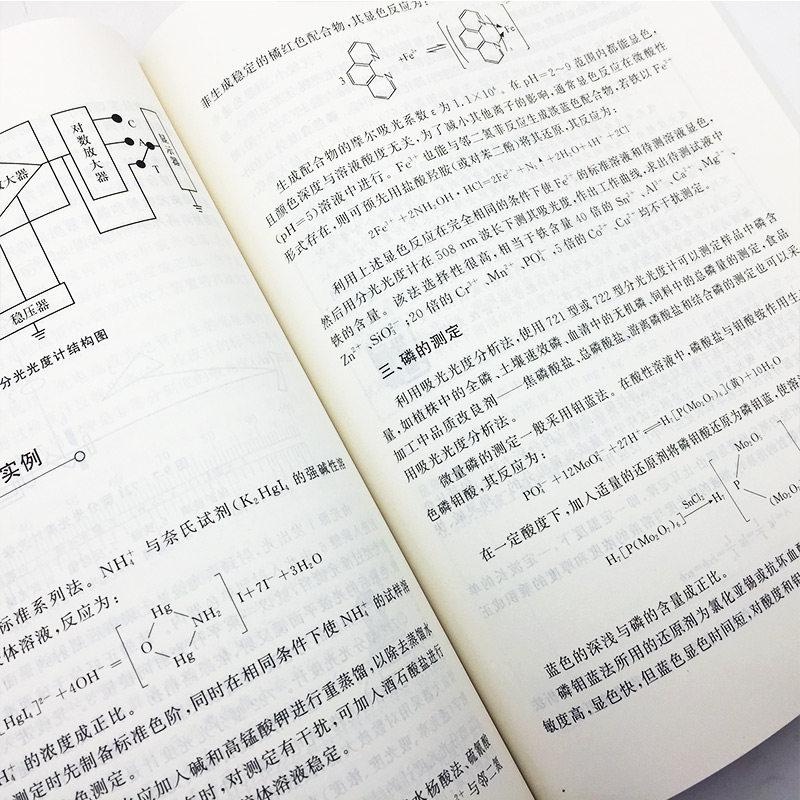 对数放大器
C
A
T
显示器
放大器
稳压器
分光光度计结构图
实例
标准系列法。NH₄⁺ 与奈氏试剂(K₂HgI₄ 的强碱性溶
体溶液,反应为:
HgI₄]²⁻+4OH⁻=[O Hg Hg NH₂]I+7I⁻+3H₂O
H₄⁺ 的浓度成正比。
测定时先制备标准色阶,同时在相同条件下使 NH₄⁺ 的试样溶
色测定。
应加入碱和高锰酸钾进行重蒸馏,以除去蒸馏水
时,对测定有干扰,可加入酒石酸盐进行
体溶液稳定。
水杨酸法、硫氰酸
²⁺与邻二氮
菲生成稳定的橘红色配合物,其显色反应为:
3 +Fe²⁺ ⇌ Fe
生成配合物的摩尔吸光系数 ε 为 1.1×10⁴。在 pH=2~9 范围内都能显色,
且颜色深度与溶液酸度无关,为了减小其他离子的影响,通常显色反应在微酸性
(pH=5)溶液中进行。Fe³⁺ 也能与邻二氮菲反应生成淡蓝色配合物,若铁以 Fe³⁺
形式存在,则可预先用盐酸羟胺(或对苯二酚)将其还原,其反应为:
2Fe³⁺+2NH₂OH·HCl=2Fe²⁺+N₂↑+2H₂O+4H⁺+2Cl⁻
利用上述显色反应在完全相同的条件下使 Fe²⁺ 的标准溶液和待测溶液显色,
然后用分光光度计在 508 nm 波长下测其吸光度,作出工作曲线,求出待测试液中
铁的含量。该法选择性很高,相当于铁含量 40 倍的 Sn²⁺、Al³⁺、Ca²⁺、Mg²⁺、
Zn²⁺、SiO₃²⁻,20 倍的 Cr³⁺、Mn²⁺、PO₄³⁻,5 倍的 Co²⁺、Cu²⁺ 均不干扰测定。
三、磷的测定
利用吸光光度分析法,使用 721 型或 722 型分光光度计可以测定样品中磷含
量,如植株中的全磷、土壤速效磷、血清中的无机磷、饲料中的总磷量的测定,食品
加工中品质改良剂——焦磷酸盐、总磷酸盐、游离磷酸盐和结合磷的测定也可以采
用吸光光度分析法。
微量磷的测定一般采用钼蓝法。在酸性溶液中,磷酸盐与钼酸铵作用生
色磷钼酸,其反应为:
PO₄³⁻+12MoO₄²⁻+27H⁺=H₇[P(Mo₂O₇)₆](黄)+10H₂O
在一定酸度下,加入适量的还原剂将磷钼酸还原为磷钼蓝,使溶
H₇[P(Mo₂O₇)₆] SnCl₂→H₇[P Mo₂O₅ (Mo₂O
蓝色的深浅与磷的含量成正比。
磷钼蓝法所用的还原剂为氯化亚锡或抗坏血酸
敏度高,显色快,但蓝色显色时间短,对酸度和钼